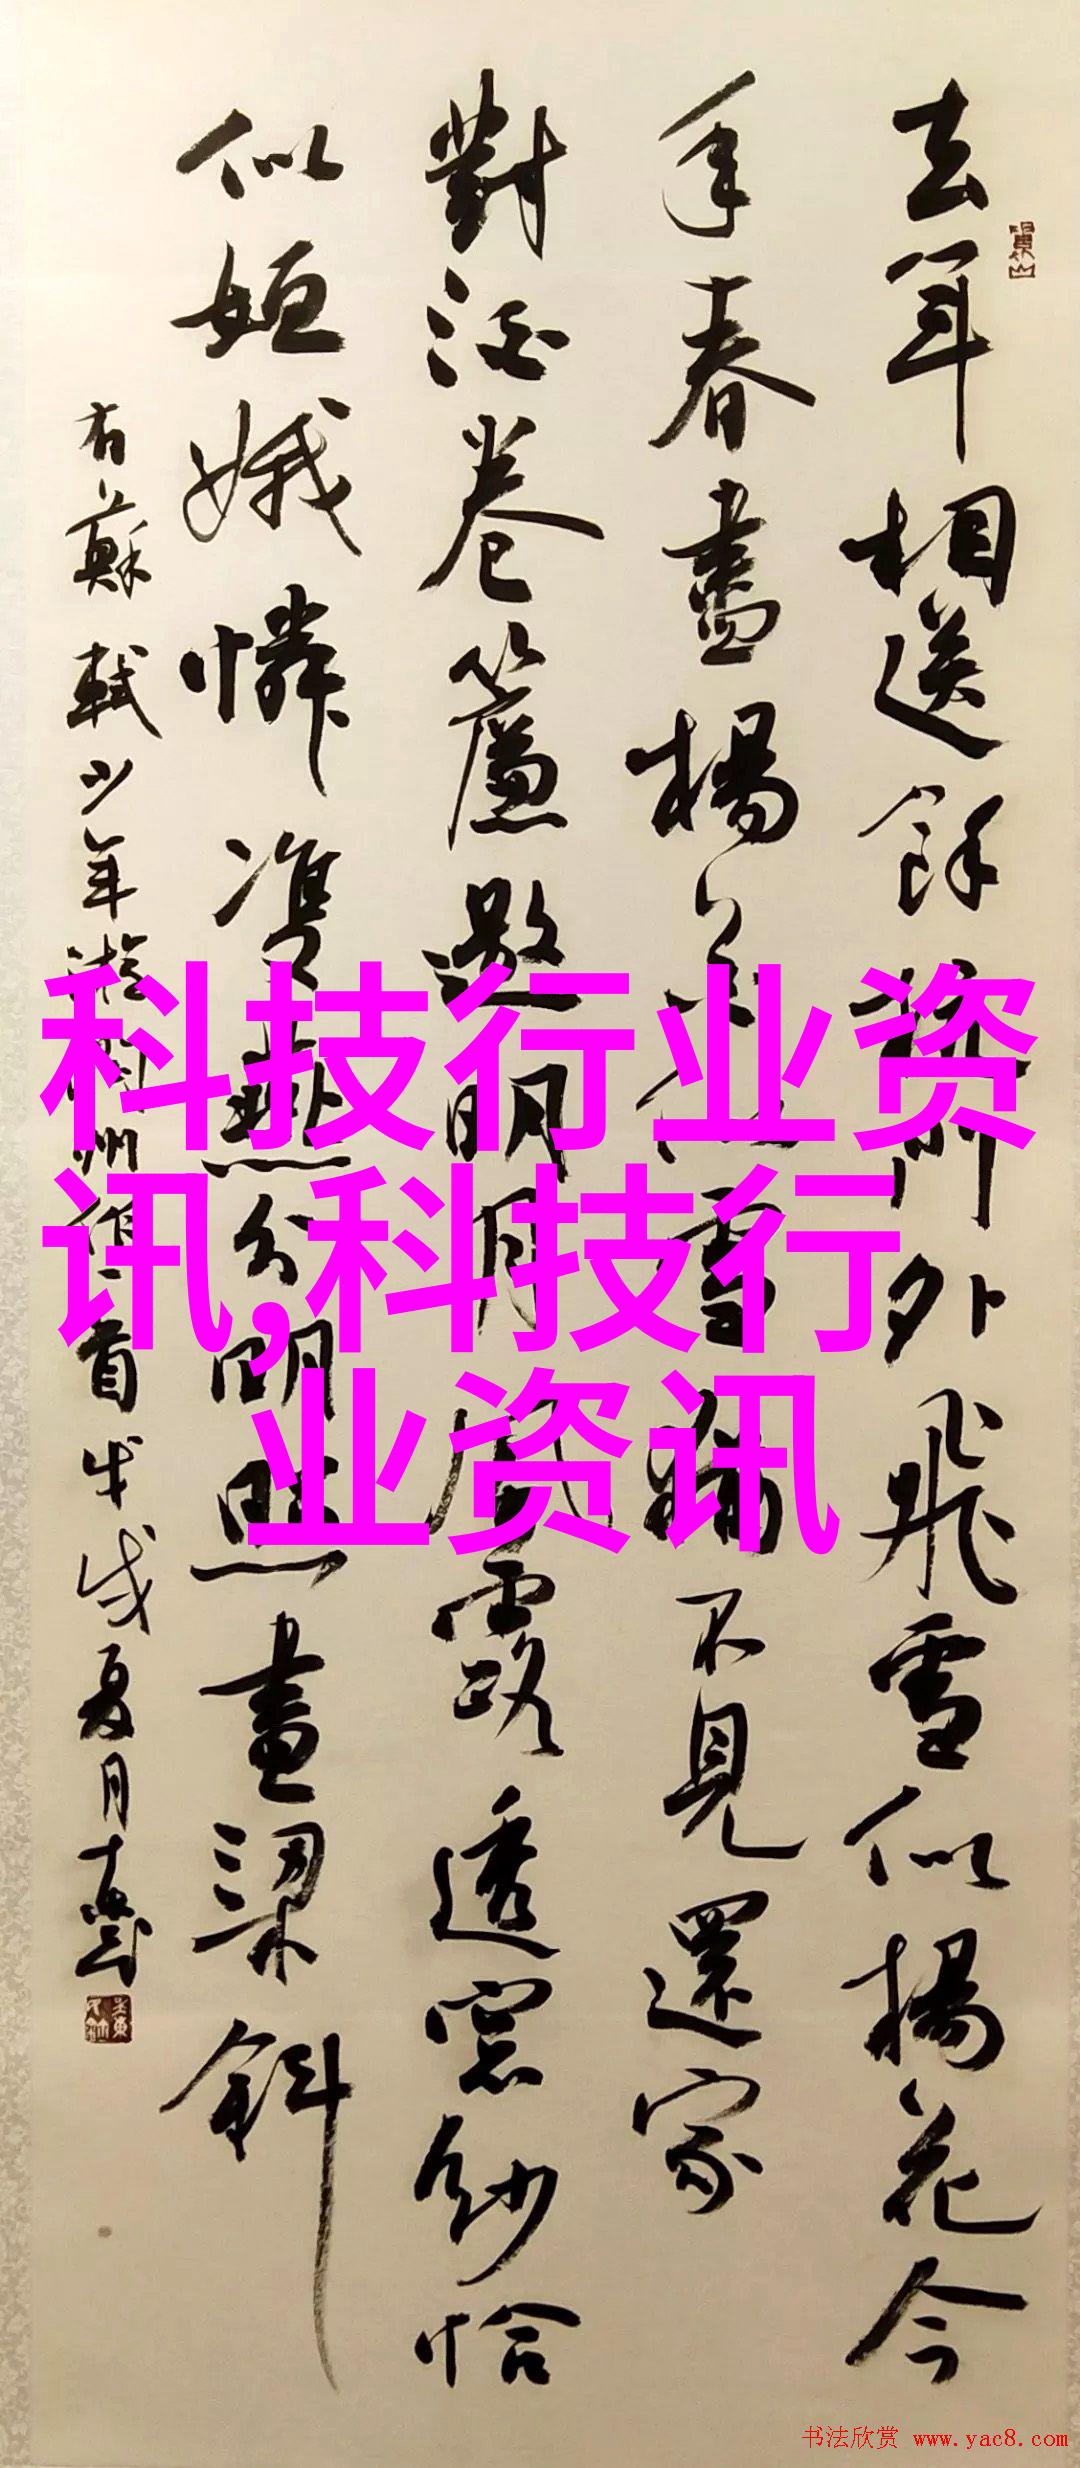 去年相送餘杭門外飛雪似楊花今
年春盡楊花似雪猶不見還家
對酒卷簾邀明月風露透窓紗恰
似姮娥憐雙燕分明照畫梁斜
右蘇軾少年遊潤州作一首戊戌夏月
科技行业资
讯,科技行
业资讯
书法欣赏 www.yac8.com